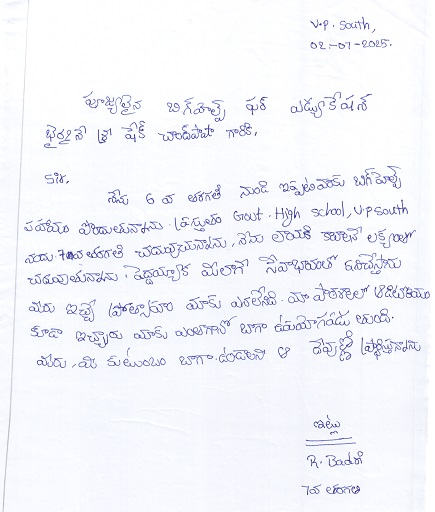 V.P. South,
02-07-2025.
పూజ్యులైన బిగ్ హెల్ప్ ఫర్ ఎడ్యుకేషన్
శ్రీ షేక్ చాంద్ పాషా గారికి,
Sir,
నేను 6 వ తరగతి నుండి ఇప్పటివరకు బిగ్ హెల్ప్
సహాయం పొందుతున్నాను. ప్రస్తుతం Govt. High school, V.P South
నందు 7వ తరగతి చదువుచున్నాను, నేను లాయర్ కావాలనే లక్ష్యంతో
చదువుతున్నాను. పెద్దయ్యాక మీలాగే సేవాభావంతో పనిచేస్తాను
మీరు ఇచ్చే ప్రోత్సాహం మాకు మా పాఠశాలలో
కూడా ఇచ్చారు మాకు ఎంతగానో బాగా ఉపయోగపడు తుంది.
మీరు, మీ కుటుంబం బాగా ఉండాలని ఆ దేవుణ్ణి ప్రార్థిస్తున్నాను
ఇట్లు
R. Badri
7వ తరగతి